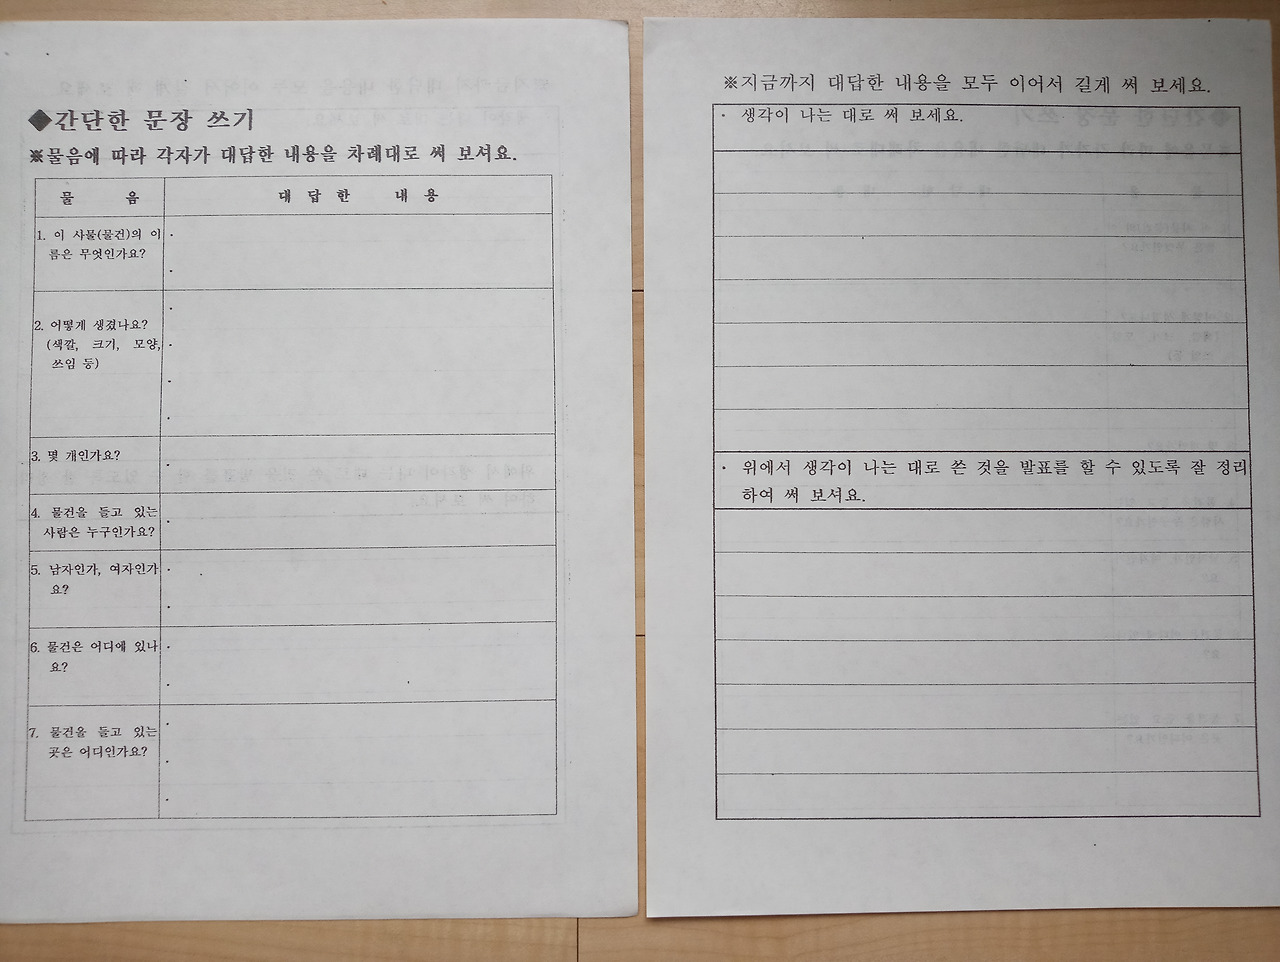 ◆간단한 문장 쓰기
※물음에 따라 각자가 대답한 내용을 차례대로 써 보셔요.
물 음
대 답 한 내 용
1. 이 사물(물건)의 이
름은 무엇인가요?
2. 어떻게 생겼나요?
(색깔, 크기, 모양,
쓰임 등)
3. 몇 개인가요?
4. 물건을 들고 있는
사람은 누구인가요?
5. 남자인가, 여자인가
요?
6. 물건은 어디에 있나
요?
7. 물건을 들고 있는
곳은 어디인가요?
※지금까지 대답한 내용을 모두 이어서 길게 써 보세요.
· 생각이 나는 대로 써 보세요.
· 위에서 생각이 나는 대로 쓴 것을 발표를 할 수 있도록 잘 정리
하여 써 보셔요.